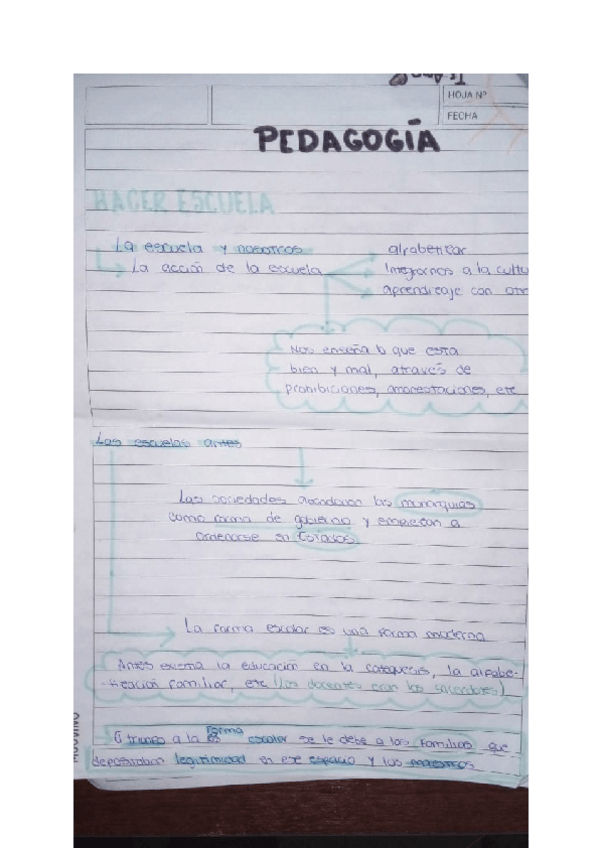 HOJA Nº
FECHA
PEDAGOGÍA
HACER ESCUELA
La escuela y nosotros
La acción de la escuela
alfabetizar
Integrarnos a la cultu
aprendizaje con otr
Nos enseña lo que esta
bien y mal, através de
prohibiciones, amonestaciones, etc
Las escuelas antes
Las sociedades abandonan las monarquias
como forma de gobierno y empiezan a
ordenarse en Estados
La forma escolar es una forma moderna
Antes existia la educación en la catequesis, la alfabe-
-tización familiar, etc (los docentes eran los
El triunfo a la forma escolar se le debe a las familias que
depositaban legitimidad en ese espacio y los maestros